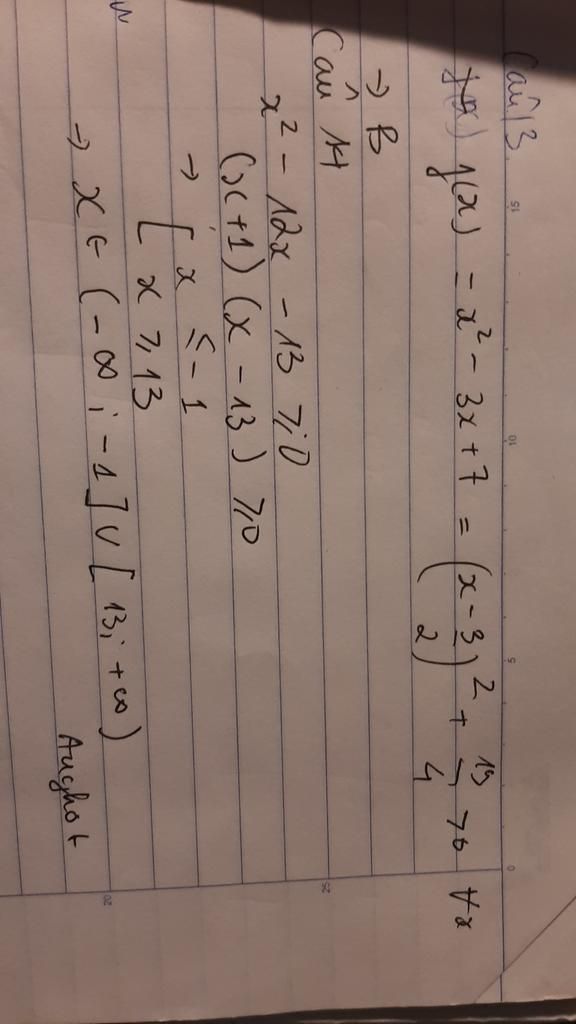 Câu 13
f(x) f(x) = x² - 3x + 7 = (x - 3/2)² + 19/4 > 0 ∀x
→ B
Câu 14
x² - 12x - 13 ⩾ 0
(x+1) (x - 13) ⩾ 0
→ [ x ⩽ -1
[ x ⩾ 13
→ x ∈ (-∞; -1] ∪ [13; +∞)